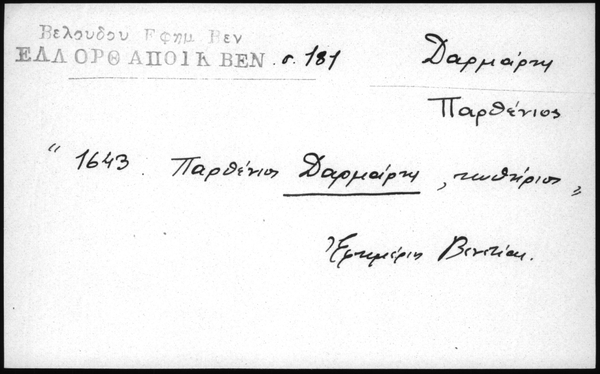 Βελουδου Εφημ Βεν
ΕΛΛ ΟΡΘ ΑΠΟΙΚ ΒΕΝ. σ. 181
Δαρμάρης
Παρθένιος
" 1643. Παρθένιος Δαρμάρης,
Ἐφημέριος Βενετίας.